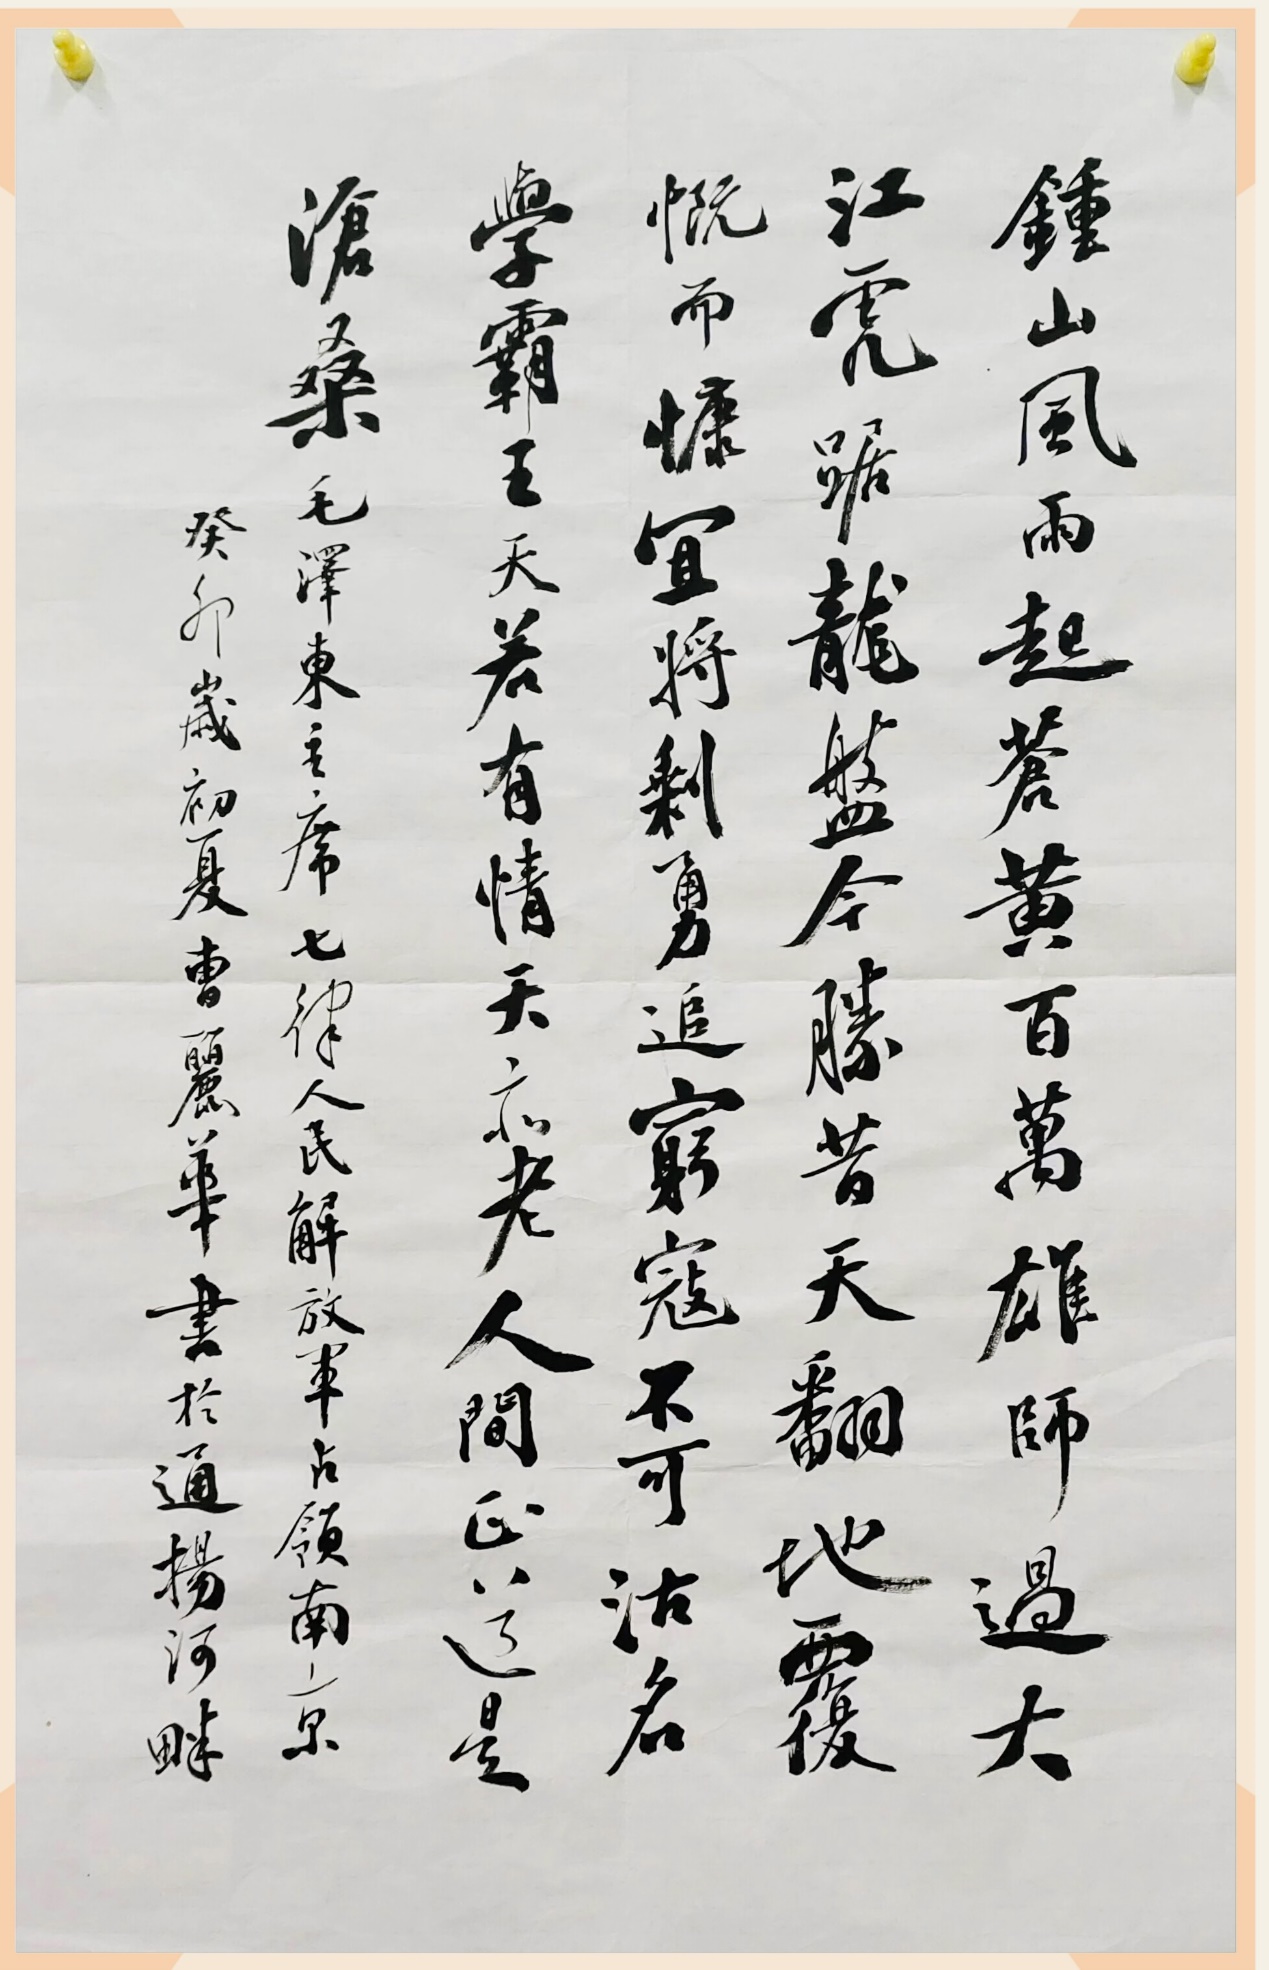 鍾山風雨起蒼黃百萬雄師過大
江虎踞龍盤今勝昔天翻地覆
慨而慷宜將剩勇追窮寇不可沽名
學霸王天若有情天亦老人間正道是
滄桑毛澤東主席七律人民解放軍占領南京
癸卯歲初夏曹麗華書於通揚河畔